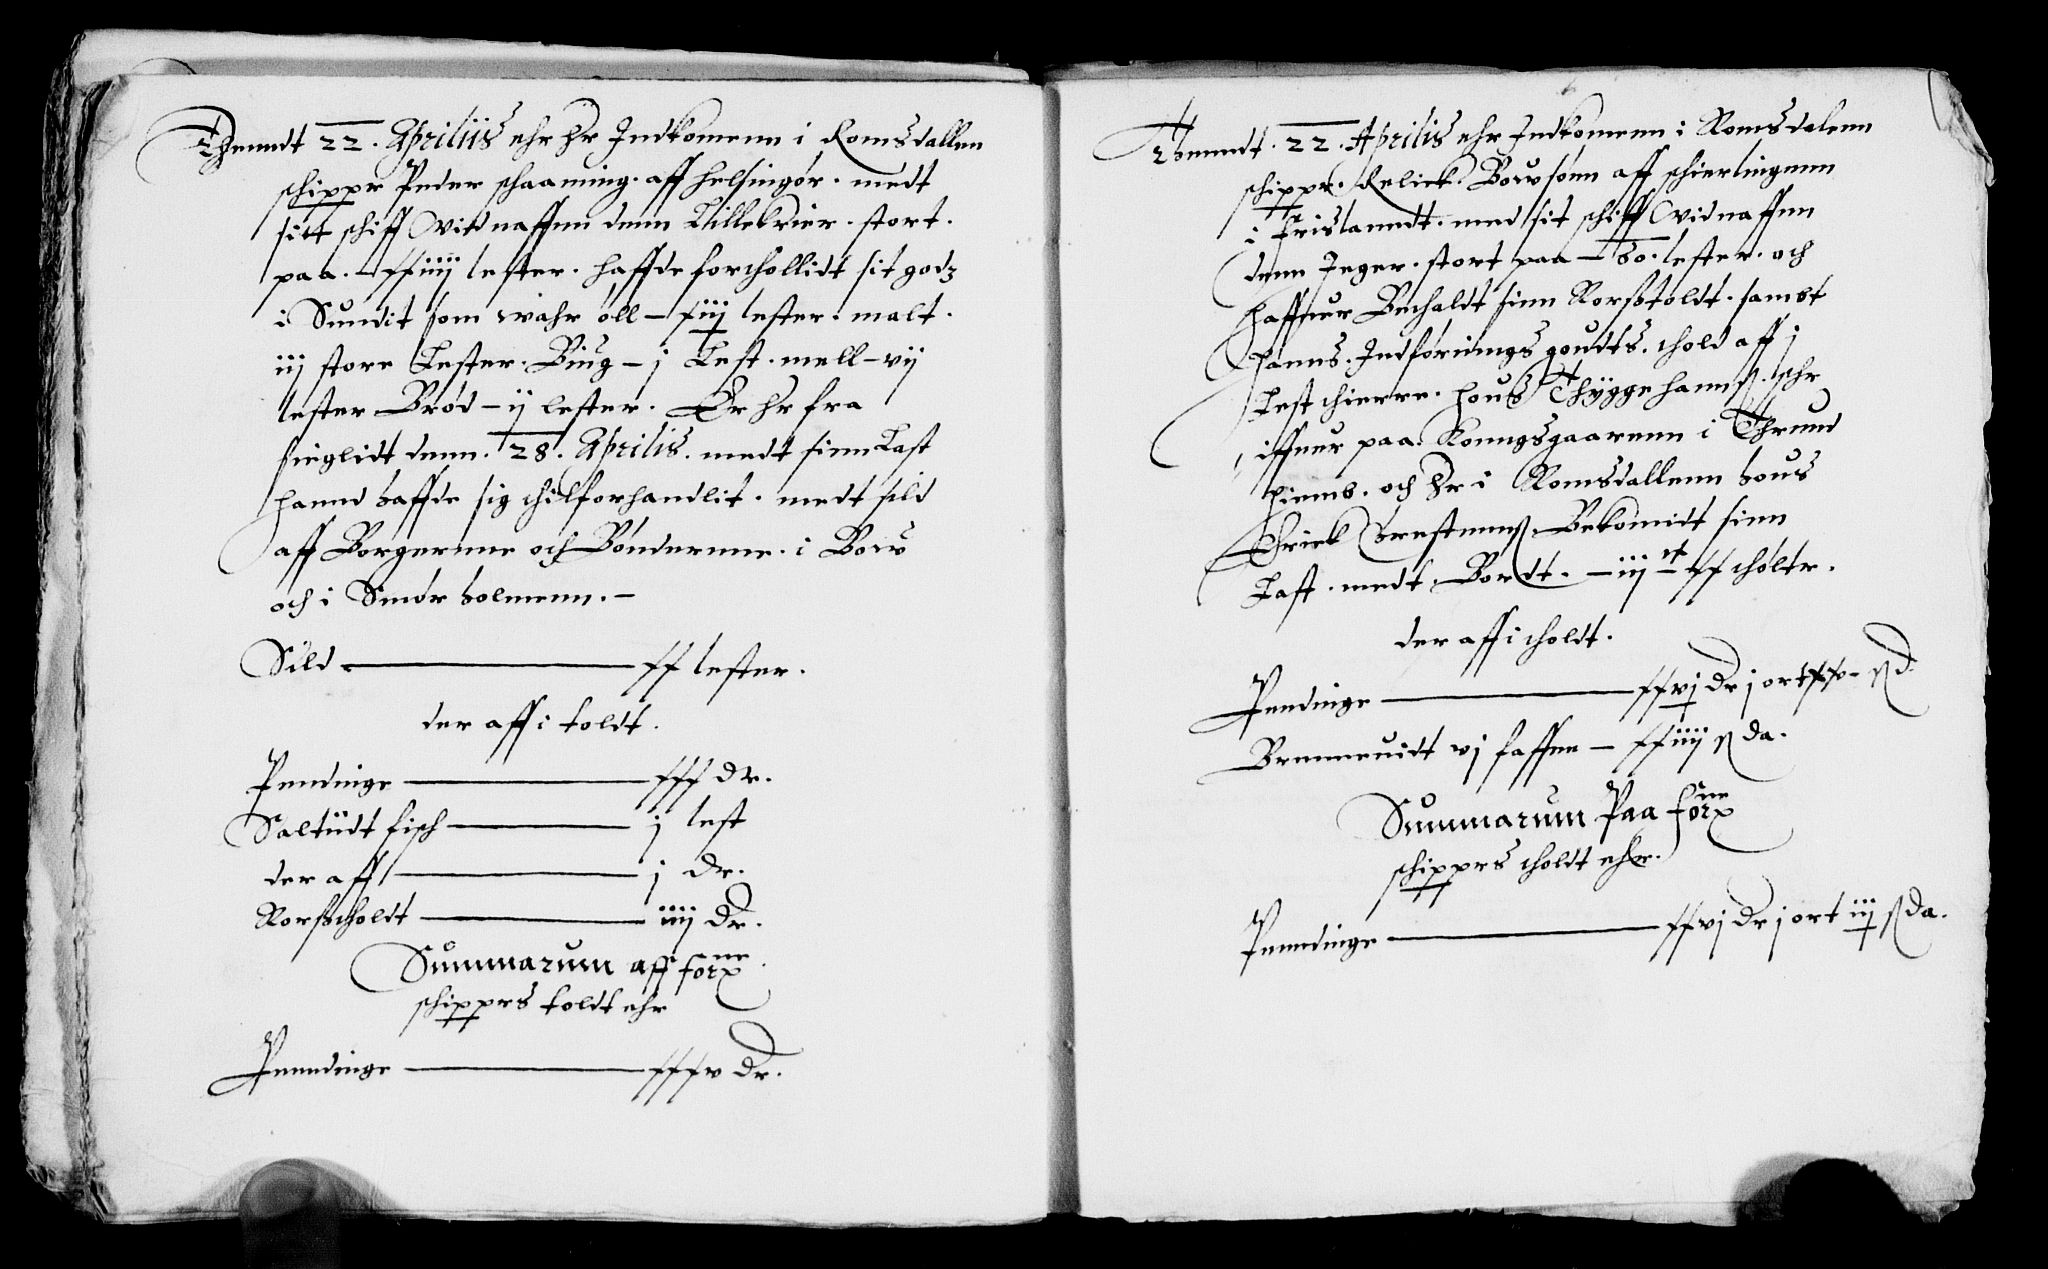 Thenndt 22. Apriliis ehr hr Indkomenn i Romsdallen
schippr Peder schaaning. aff helsingør. medt
sitt schiff vid naffnn denn Lillebrier. stort.
paa. – xxiiij lester. haffde forthollidt sit godz
i Sundit som wahr øll – xiij lester. malt.
iij store Lester. Biug – j Lest. mell – vij
lester Brød – ij lester. Er hr fra
sieglidt denn. 28. Aprilis. medt sinn Last
hannd haffde sig thilforhandlit. medt sild
aff Borgernne och Bønndernne. i Bow
och i Smør holmenn. –
Sild — xx lester.
der aff i toldt.
Penndinge — xxx dr.
Saltiidt fisch — j lest
der aff — j dr.
Rorßtholdt — iiij dr.
Summarum aff forne
schipprs toldt ehr
Penndinge — xxxv dr.
Thenndt. 22. Aprilis ehr Indkomenn i Romsdalenn
schippr. Relick. Bowsønn aff schierlingenn
i Frislanndt. med sit schiff vid naffnn
denn Jeger. stort paa – 80. lester. och
haffuer Bethaldt sinn Rorßtoldt. sambt
hanns. Indførinngs goudts. thold aff j
Lest thierre. houß Thygge hannß. sehr
iffuer paa. Konngsgaarenn i Thrund
hiemb. och hr i Romsdallenn hous
Chrick Crestennß Bekomidt sinn
Last. medt Bordt. – iij xx tholtr.
der aff i tholdt.
Penndinge — xxvj dr j ort xx– ß d.
Brenneuidt vj faffne – xxiiij ß da.
Summarum Paa forne
schipprs tholdt ehr.
Penndinge — xxvj dr j ort iij ß da.